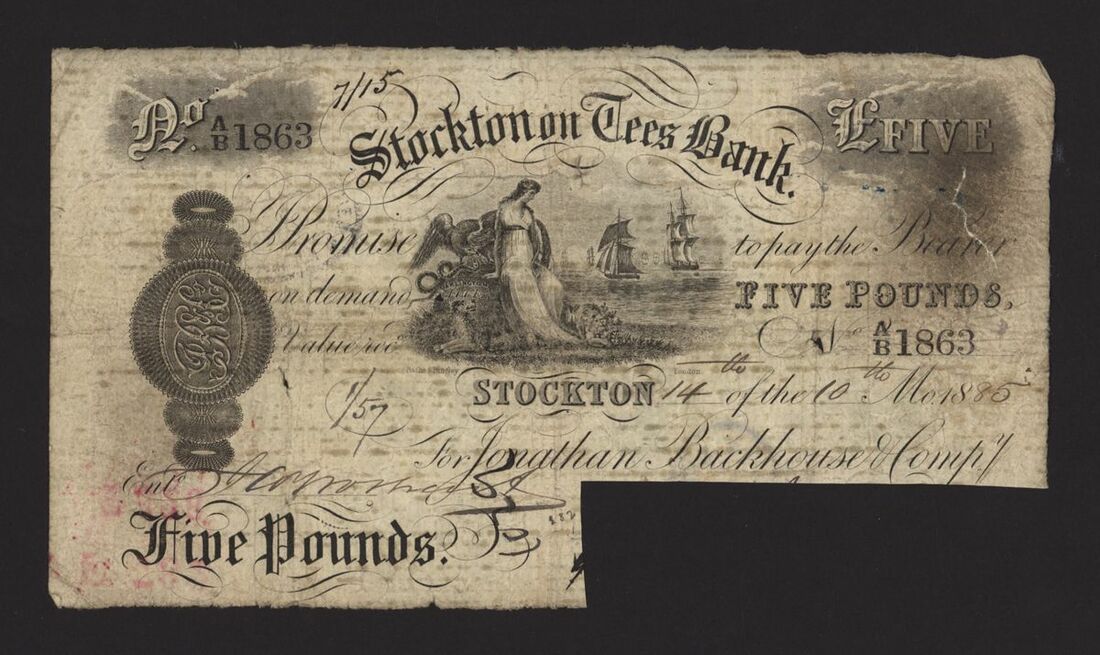 No. A/B 1863 7/15 £FIVE
Stockton on Tees Bank.
I Promise to pay the Bearer
on demand FIVE POUNDS,
Value recd No A/B 1863
London
STOCKTON 14th of the 10th Mo. 1885
1/57
For Jonathan Backhouse & Compy
Entd
Five Pounds.